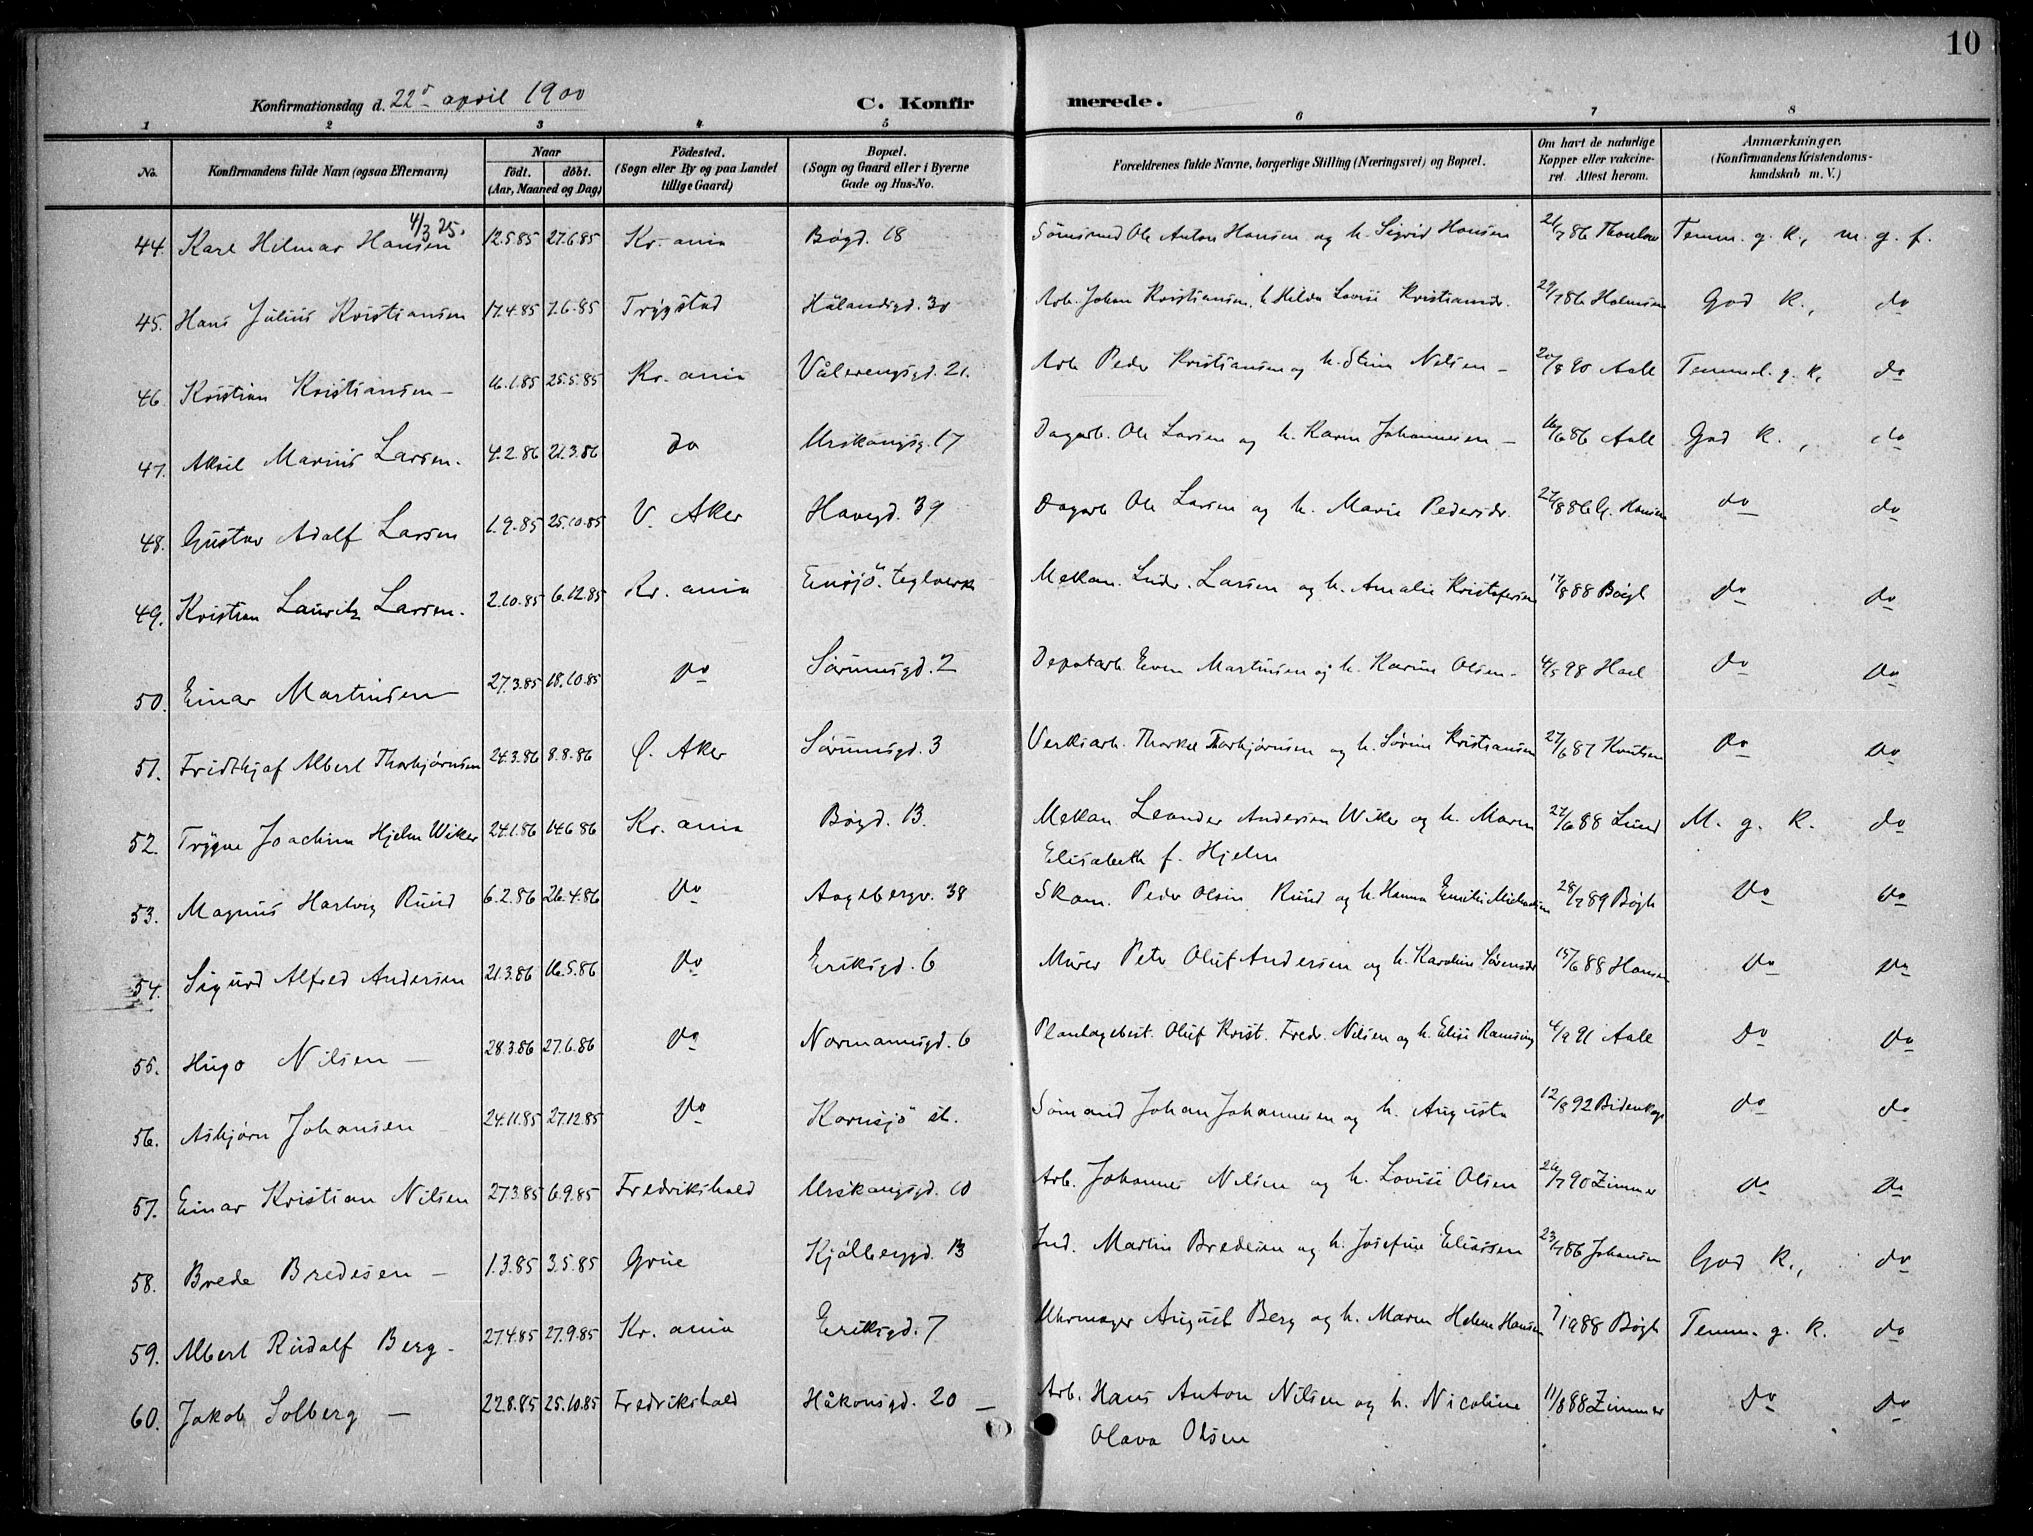 10
Konfirmationsdag d. 22d april 1900
C. Konfirmerede.
1 2 3 4 5 6 7 8
No. Konfirmandens fulde Navn (ogsaa Efternavn) Naar født. døbt. (Aar, Maaned og Dag) Fødested. (Sogn eller By og paa Landet tillige Gaard) Bopæl. (Sogn og Gaard eller i Byerne Gade og Hus-No. Forældrenes fulde Navne, borgerlige Stilling (Næringsvei) og Bopæl. Om havt de naturlige Kopper eller vakcineret. Attest herom. Anmærkninger. (Konfirmandens Kristendomskundskab m. V.)
4/3 25.
44. Karl Hilmar Hansen 12.5.85 27.6.85 Kr.ania Bøgd. 18 Sømand Ole Anton Hansen og h. Sigrid Hansen 26/7 86 Thaulow Temm. g. K., m. g. f.
45. Hans Julius Kristiansen 17.4.85 7.6.85 Trygstad Hålandsgd. 30 Arb. Johan Kristiansen, h. Hilda Lovise Kristiansdr. 29/7 86 Holmsen God K., do
46. Kristian Kristiansen – 16.1.85 25.5.85 Kr.ania Vålerengsgd. 21. Arb. Peder Kristiansen og h. Stina Nilsen – 20/8 90 Aall Temmel. g. K, do
47. Aksel Marius Larsen. 4.2.86 21.3.86 do Urskougsg. 17 Dagarb. Ole Larsen og h. Karen Johannesen – 16/6 86 Aall God K., do
48. Gustav Adolf Larsen 1.9.85 25.10.85 V. Aker Havegd. 39 Dagarb Ole Larsen og h. Marie Pedersdr. 27/8 86 G. Hansen do do
49. Kristian Lauritz Larsen. 2.10.85 6.12.85 Kr.ania Ensjö teglverk Mekan. Ludv. Larsen og h. Amalie Kristofersen 17/8 88 Bøgh do do
50. Einar Martinsen – 27.3.85 18.10.85 do Sørumsgd. 2 Depotarb. Even Martinsen og h. Karine Olsen – 4/5 98 Hoel do do
51. Fridthjof Albert Thorbjørnsen 24.3.86 8.8.86 Ø. Aker Sørumsgd. 3 Verksarb. Thorkel Thorbjørnsen og h. Sørine Kristiansen 27/6 87 Knutsen do do
52. Trygve Joachim Hjelm Wiker 24.1.86 14.6.86 Kr.ania Bøgd. 13. Mekan. Leander Andersen Wiker og h. Maren
Elisabeth f. Hjelm 27/6 88 Lund M. g. K. do
53. Magnus Hartvig Ruud 6.2.86 26.4.86 do Aagebergv. 38 Skom. Peder Olsen Ruud og h. Hanna Emilie Michaelsen 28/7 89 Bøgh do do
54. Sigurd Alfred Andersen 21.3.86 16.5.86 do Eriksgd. 6 Murer Peter Oluf Andersen og h. Karoline Sørensdr 15/6 88 Hansen do do
55. Hugo Nilsen – 28.3.86 27.6.86 do Normannsgd. 6 Plantagebest. Oluf Krist. Fredr. Nilsen og h. Elise Ramsing 4/9 91 Aall do do
56. Asbjørn Johansen 24.11.85 27.12.85 do Kornsjö st. Sømand Johan Johannesen og h. Augusta 12/8 92 Bidenkap do do
57. Einar Kristian Nilsen 27.3.85 6.9.85 Fredrikshald Urskougsgd. 10 Arb. Johannes Nilsen og h. Lovise Olsen 26/7 90 Zimmer do do
58. Brede Bredesen – 1.3.85 3.5.85 Grue Kjølberggd. 13 Ind. Martin Bredesen og h. Josefine Eliassen 23/7 86 Johansen God K., do
59. Albert Rudolf Berg – 27.4.85 27.9.85 Kr.ania Eriksgd. 7 Uhrmager August Berg og h. Maren Helene Hansen 7/10 88 Bøgh Temm. g. K. do
60. Jakob Solberg – 22.8.85 25.10.85 Fredrikshald Håkonsgd. 20 – Arb. Hans Anton Nilsen og h. Nicoline
Olava Olsen 11/8 88 Zimmer do do